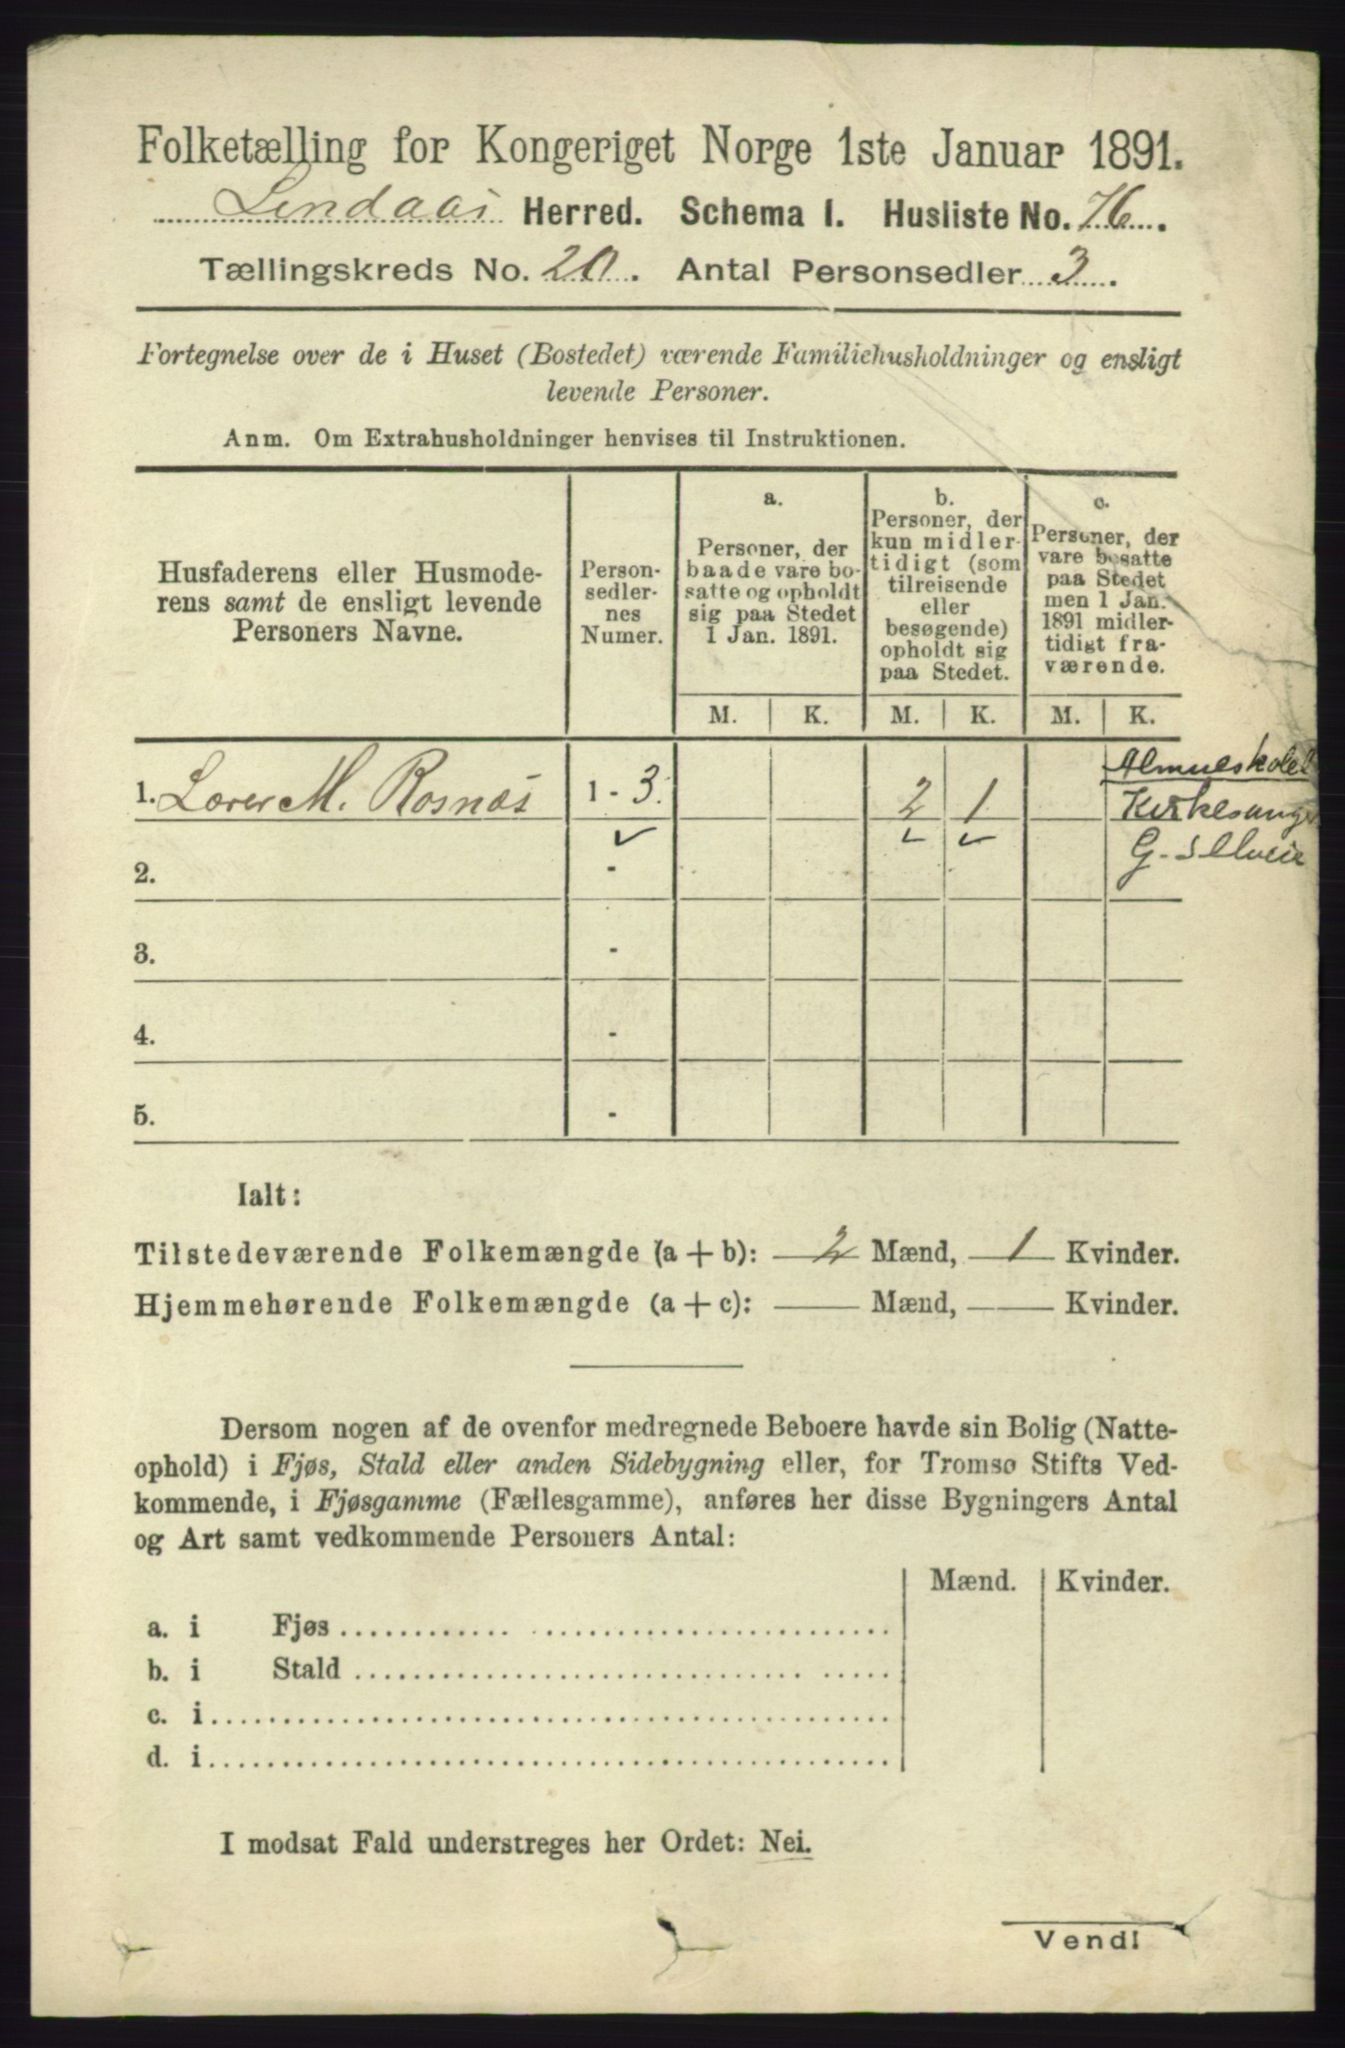 Folketælling for Kongeriget Norge 1ste Januar 1891.
Lindaas Herred. Schema I. Husliste No. 76.
Tællingskreds No. 20. Antal Personsedler 3.
Fortegnelse over de i Huset (Bostedet) værende Familiehusholdninger og ensligt
levende Personer.
Anm. Om Extrahusholdninger henvises til Instruktionen.
Husfaderens eller Husmode-
rens samt de ensligt levende
Personers Navne.
Person-
sedler-
nes
Numer.
a.
Personer, der
baade vare bo-
satte og opholdt
sig paa Stedet
1 Jan. 1891.
b.
Personer, der
kun midler-
tidigt (som
tilreisende
eller
besøgende)
opholdt sig
paa Stedet.
c.
Personer, der
vare bosatte
paa Stedet
men 1 Jan.
1891 midler-
tidigt fra-
værende.
M. K. M. K. M. K.
1. Lærer M. Rosnæs 1 - 3. 2 1
Almueskolel
Kirkesanger
G.
2. -
3. -
4. -
5. -
Ialt:
Tilstedeværende Folkemængde (a + b): 2 Mænd, 1 Kvinder.
Hjemmehørende Folkemængde (a + c): — Mænd, — Kvinder.
Dersom nogen af de ovenfor medregnede Beboere havde sin Bolig (Natte-
ophold) i Fjøs, Stald eller anden Sidebygning eller, for Tromsø Stifts Ved-
kommende, i Fjøsgamme (Fællesgamme), anføres her disse Bygningers Antal
og Art samt vedkommende Personers Antal:
Mænd. Kvinder.
a. i Fjøs
b. i Stald
c. i
d. i
I modsat Fald understreges her Ordet: Nei.
Vend!